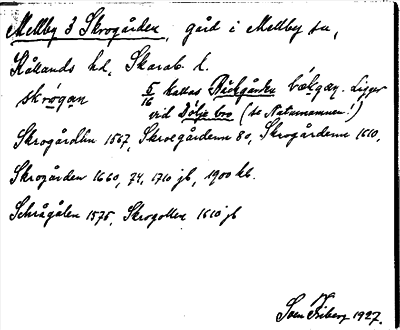 Mellby 3 Skrogården, gård i Mellby sn,
Kållands hd, Skarab. l.
skrogan 5/16 kallas Bäckgården bækgæn. Ligger
vid Dölje bro (se Naturnamnen!)
Skrogården 1567, Skroegårdenn 80, Skrogårdenn 1610,
Skrogården 1660, 74, 1710 jb, 1900 kb.
Schrågålen 1575, Skrogollen 1610 jb
Sven Friberg 1927.